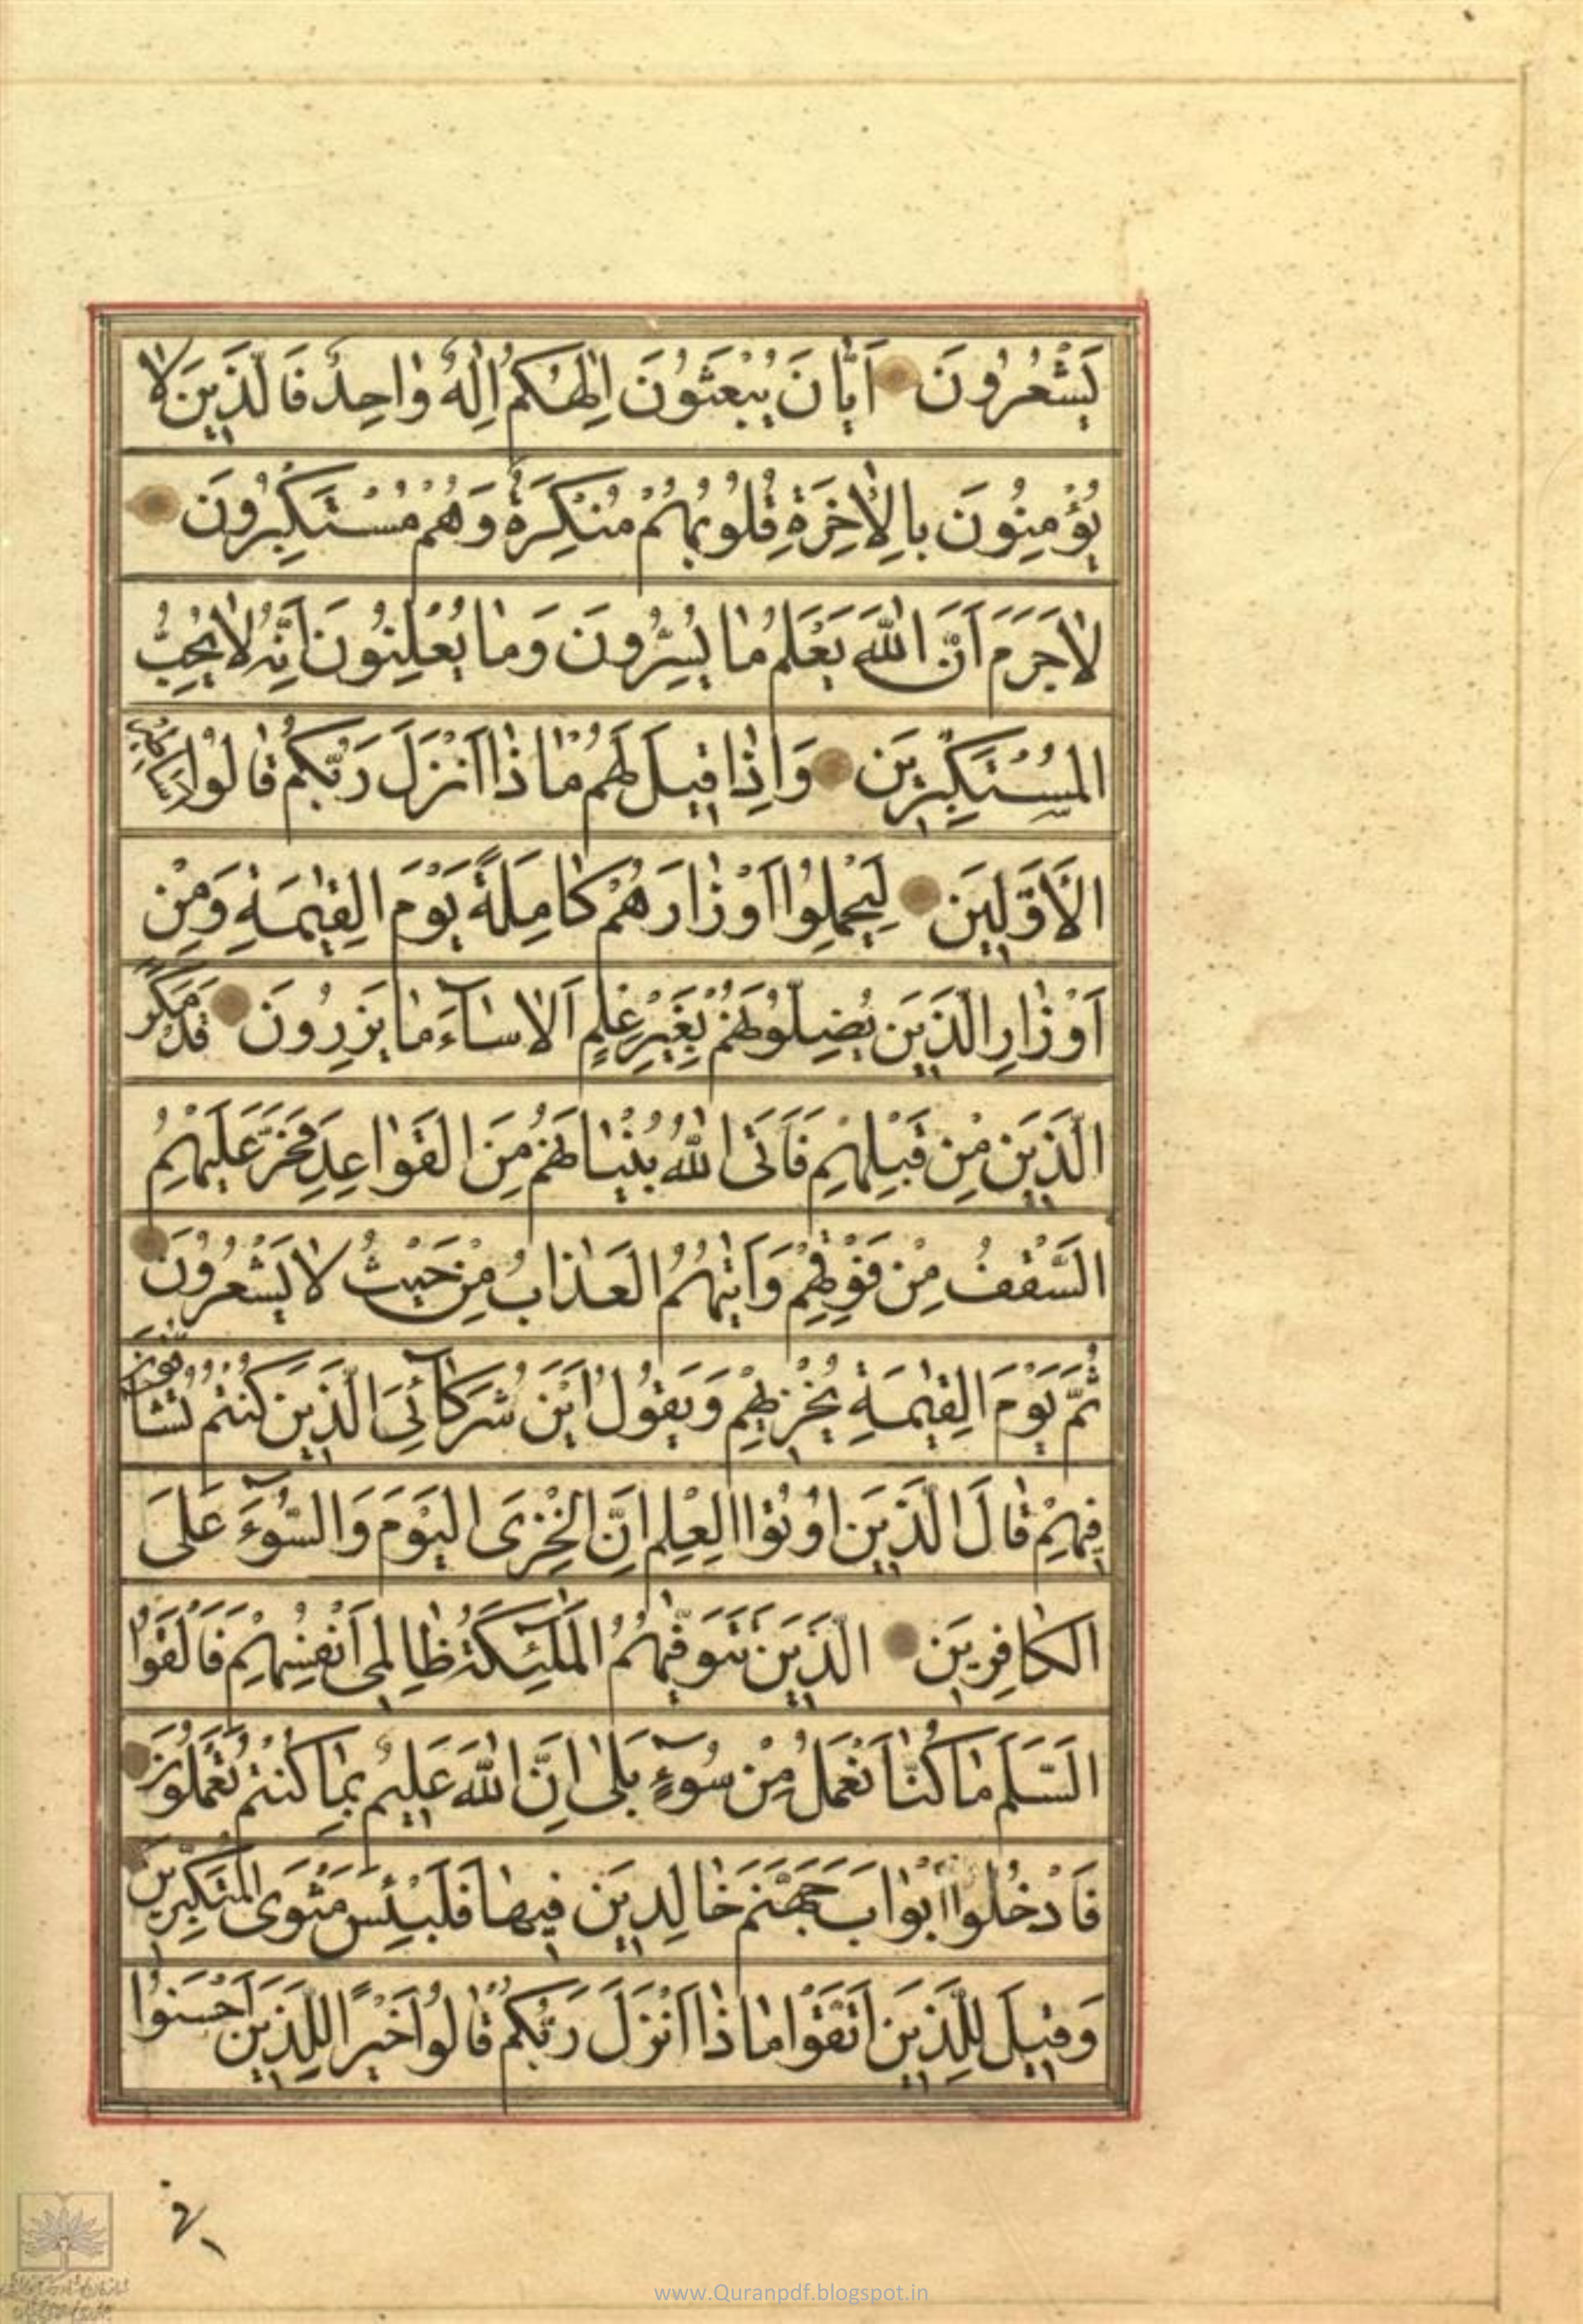 يَشْعُرُونَ اَيّٰانَ يُبْعَثُونَ اِلٰهُكُمْ اِلٰهٌ وٰاحِدٌ فَالَّذِينَ لاٰ
يُؤْمِنُونَ بِالْاٰخِرَةِ قُلُوبُهُمْ مُنْكِرَةٌ وَهُمْ مُسْتَكْبِرُونَ
لاٰ جَرَمَ اَنَّ اللّٰهَ يَعْلَمُ مٰا يُسِرُّونَ وَمٰا يُعْلِنُونَ اِنَّهُ لاٰ يُحِبُّ
الْمُسْتَكْبِرِينَ وَاِذٰا قِيلَ لَهُمْ مٰاذٰا اَنْزَلَ رَبُّكُمْ قٰالُوا اَسٰاطِيرُ
الْاَوَّلِينَ لِيَحْمِلُوا اَوْزٰارَهُمْ كٰامِلَةً يَوْمَ الْقِيٰمَةِ وَمِنْ
اَوْزٰارِ الَّذِينَ يُضِلُّونَهُمْ بِغَيْرِ عِلْمٍ اَلاٰ سٰآءَ مٰا يَزِرُونَ قَدْ مَكَرَ
الَّذِينَ مِنْ قَبْلِهِمْ فَاَتَى اللّٰهُ بُنْيٰانَهُمْ مِنَ الْقَوٰاعِدِ فَخَرَّ عَلَيْهِمُ
السَّقْفُ مِنْ فَوْقِهِمْ وَاَتٰيهُمُ الْعَذٰابُ مِنْ حَيْثُ لاٰ يَشْعُرُونَ
ثُمَّ يَوْمَ الْقِيٰمَةِ يُخْزِيهِمْ وَيَقُولُ اَيْنَ شُرَكٰآئِيَ الَّذِينَ كُنْتُمْ تُشٰاقُّونَ
فِيهِمْ قٰالَ الَّذِينَ اُوتُوا الْعِلْمَ اِنَّ الْخِزْىَ الْيَوْمَ وَالسُّوٓءَ عَلَى
الْكٰافِرِينَ الَّذِينَ تَتَوَفّٰيهُمُ الْمَلٰٓئِكَةُ ظٰالِمِى اَنْفُسِهِمْ فَاَلْقَوُا
السَّلَمَ مٰا كُنّٰا نَعْمَلُ مِنْ سُوٓءٍ بَلٰى اِنَّ اللّٰهَ عَلِيمٌ بِمٰا كُنْتُمْ تَعْمَلُونَ
فَادْخُلُوٓا اَبْوٰابَ جَهَنَّمَ خٰالِدِينَ فِيهٰا فَلَبِئْسَ مَثْوَى الْمُتَكَبِّرِينَ
وَقِيلَ لِلَّذِينَ اتَّقَوْا مٰاذٰا اَنْزَلَ رَبُّكُمْ قٰالُوا خَيْرًا لِلَّذِينَ اَحْسَنُوا
www.Quranpdf.blogspot.in